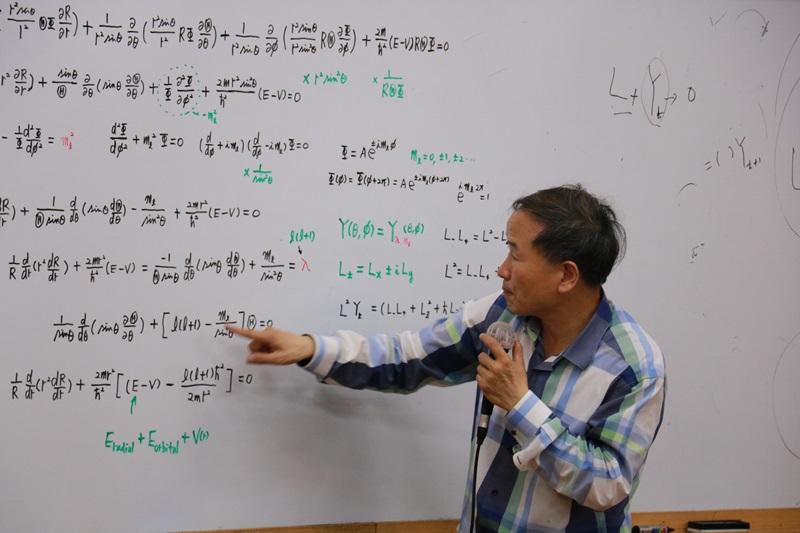 r²sinθ/l² ⊕Φ ∂R/∂r) + 1/(r²sinθ) ∂/∂θ (r²sinθ/r² RΦ ∂Θ/∂θ) + 1/(r²sinθ) ∂/∂φ (r²sinθ/(r²sin²θ) RΘ ∂Φ/∂φ) + 2m/ħ² (E-V)RΘΦ=0
r² ∂R/∂r) + sinθ/Θ ∂/∂θ (sinθ ∂Θ/∂θ) + 1/Φ ∂²Φ/∂φ² + 2mr²sin²θ/ħ² (E-V)=0
× r²sin²θ × 1/(RΘΦ)
-m_l²
- 1/Φ d²Φ/dφ² = m_l² d²Φ/dφ² + m_l²Φ=0 (d/dφ + im_l)(d/dφ - im_l)Φ=0 Φ = Ae^(±im_lφ) m_l=0, ±1, ±2 ...
× 1/sin²θ
Φ(φ) = Φ(φ+2π) = Ae^(±im_l(φ+2π)) e^(im_l2π)=1
) + 1/(Θ sinθ) d/dθ (sinθ dΘ/dθ) - m_l/sin²θ + 2mr²/ħ² (E-V)=0
Y(θ,φ) = Y (θ,φ) L₋L₊ = L²-L
l(l+1)
1/R d/dr (r² dR/dr) + 2mr²/ħ² (E-V) = -1/(Θsinθ) d/dθ (sinθ dΘ/dθ) + m_l/sin²θ = λ
L± = Lx ± iLy L² = L₋L₊
1/sinθ d/dθ (sinθ ∂Θ/∂θ) + [l(l+1) - m_l/sin²θ]Θ=0
L²Y_l = (L₋L₊ + L_z² + ħL
1/R d/dr (r² dR/dr) + 2mr²/ħ² [(E-V) - l(l+1)ħ²/2mr²] = 0
↑
E radial + E orbital + V(r)
L₊ Y_l → 0
= ( ) Y_l+1